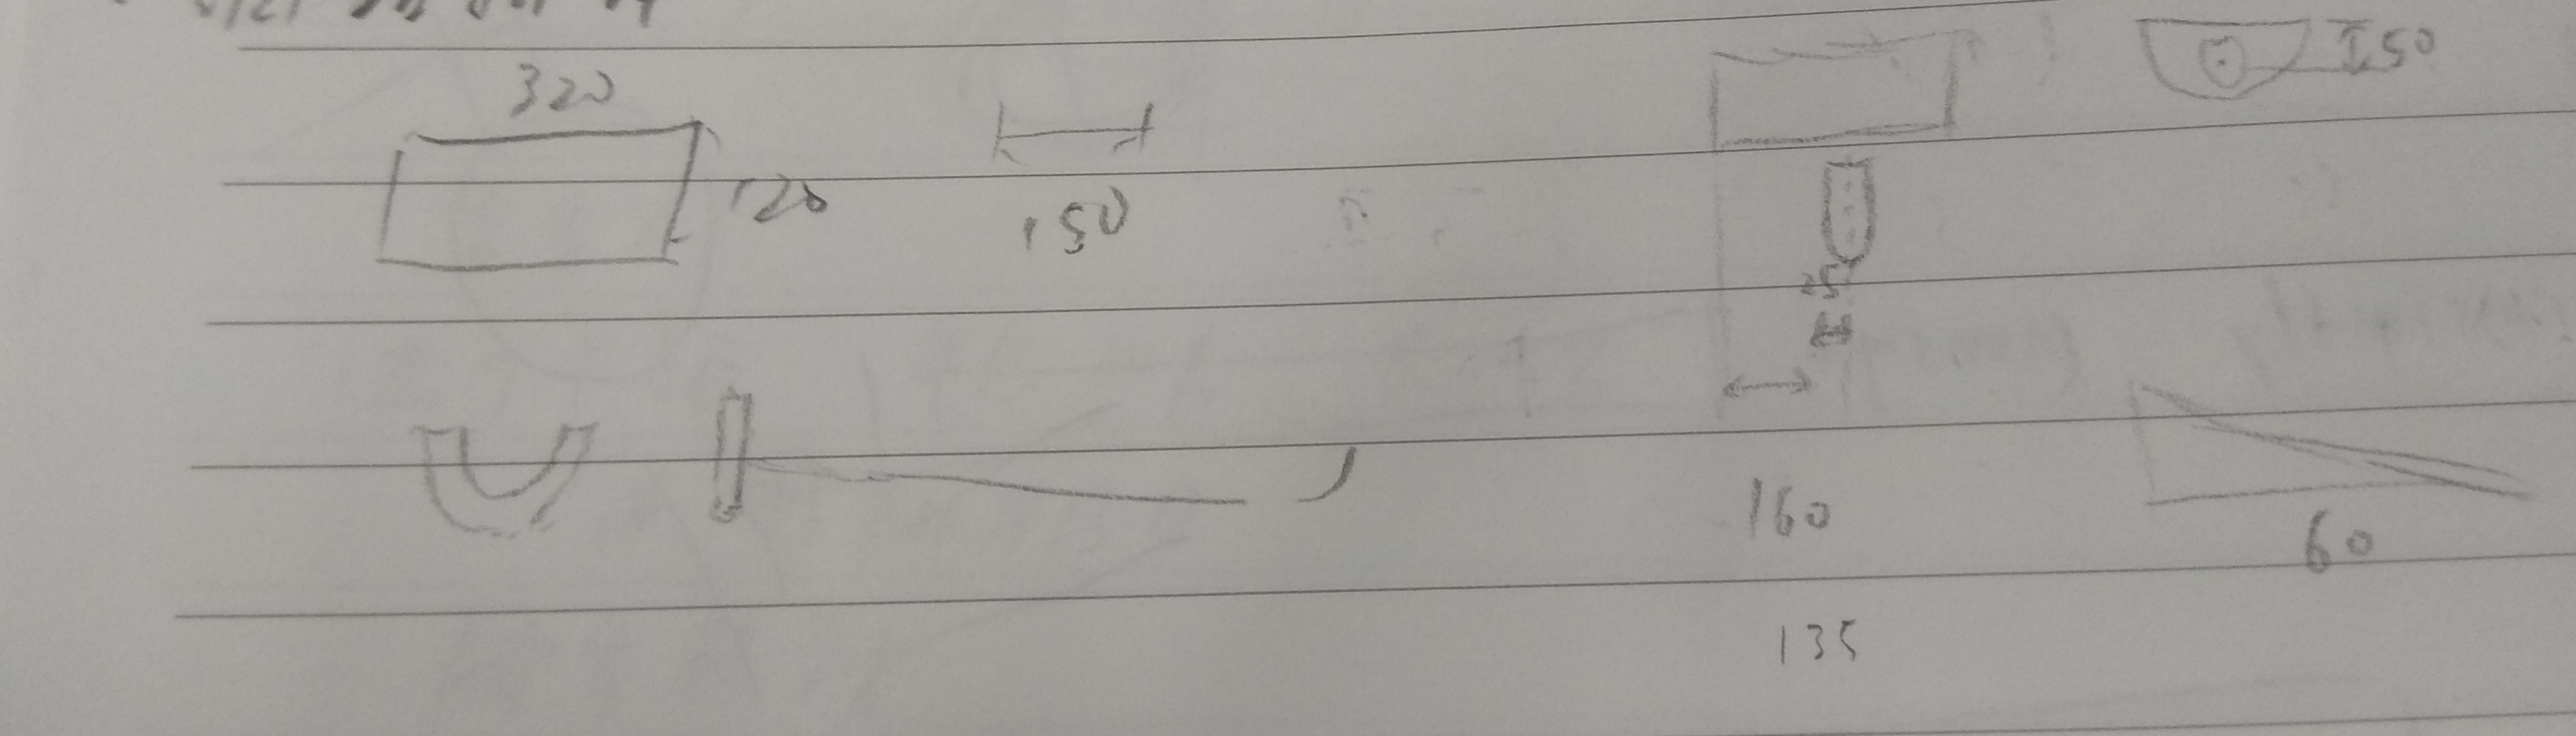 320
120
150
50
25
160
60
135